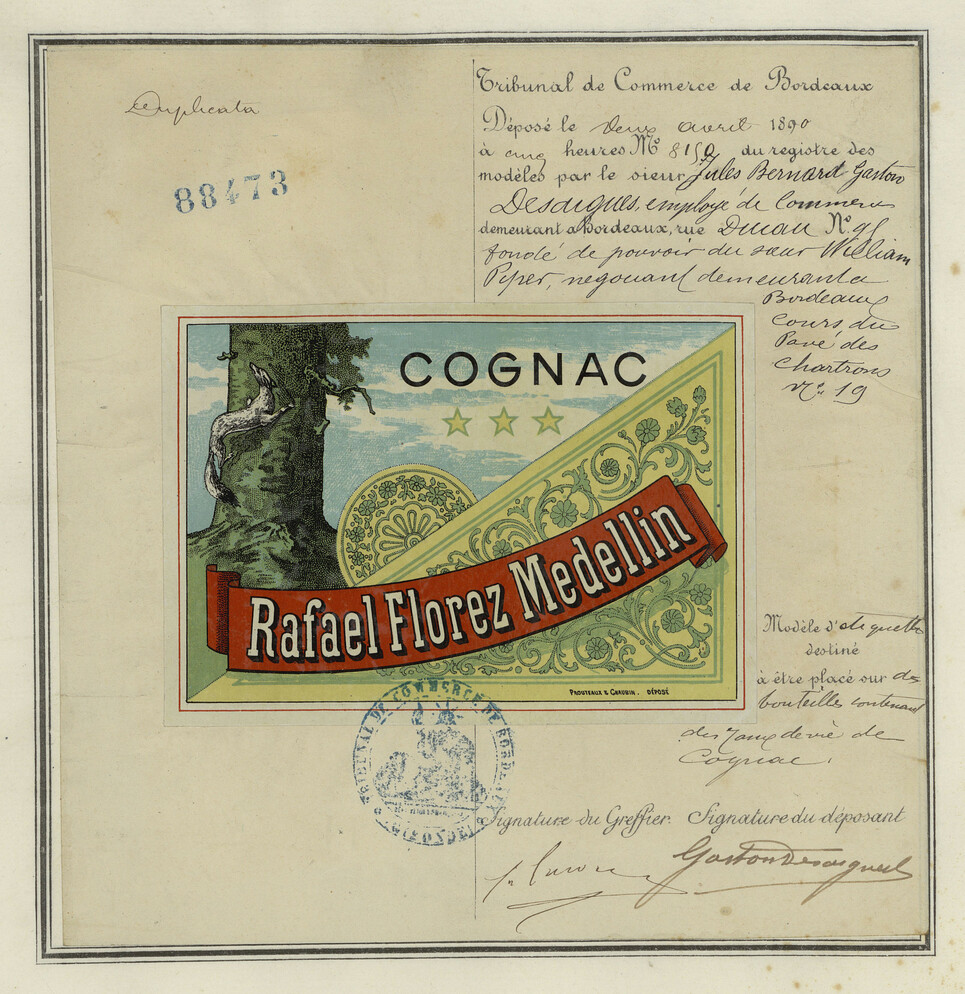 Duplicata
88473
Tribunal de Commerce de Bordeaux
Déposé le deux avril 1890
à cinq heures No 8150 du registre des
modèles par le sieur Jules Bernard Gaston
Desaigues, employé de Commerce
demeurant à Bordeaux, rue No 91
fondé de pouvoir du sieur William
Piper, négociant demeurant à
Bordeaux
Cours du
Pavé des
Chartrons
No 19
COGNAC
Rafael Florez Medellin
PROUTEAUX & CHAUBIN. DÉPOSÉ
Modèle d'étiquette
destiné
à être placé sur des
bouteilles contenant
des eaux de vie de
Cognac.
TRIBUNAL DE COMMERCE DE BORDEAUX
(GIRONDE)
Signature du Greffier. Signature du déposant
Gaston Desaigues